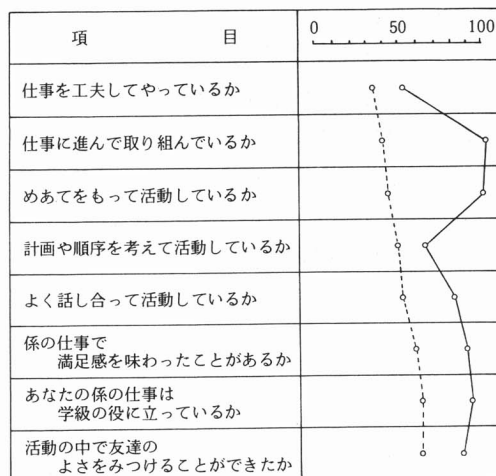 項 目
0 50 100
仕事を工夫してやっているか
仕事に進んで取り組んでいるか
めあてをもって活動しているか
計画や順序を考えて活動しているか
よく話し合って活動しているか
係の仕事で
満足感を味わったことがあるか
あなたの係の仕事は
学級の役に立っているか
活動の中で友達の
よさをみつけることができたか